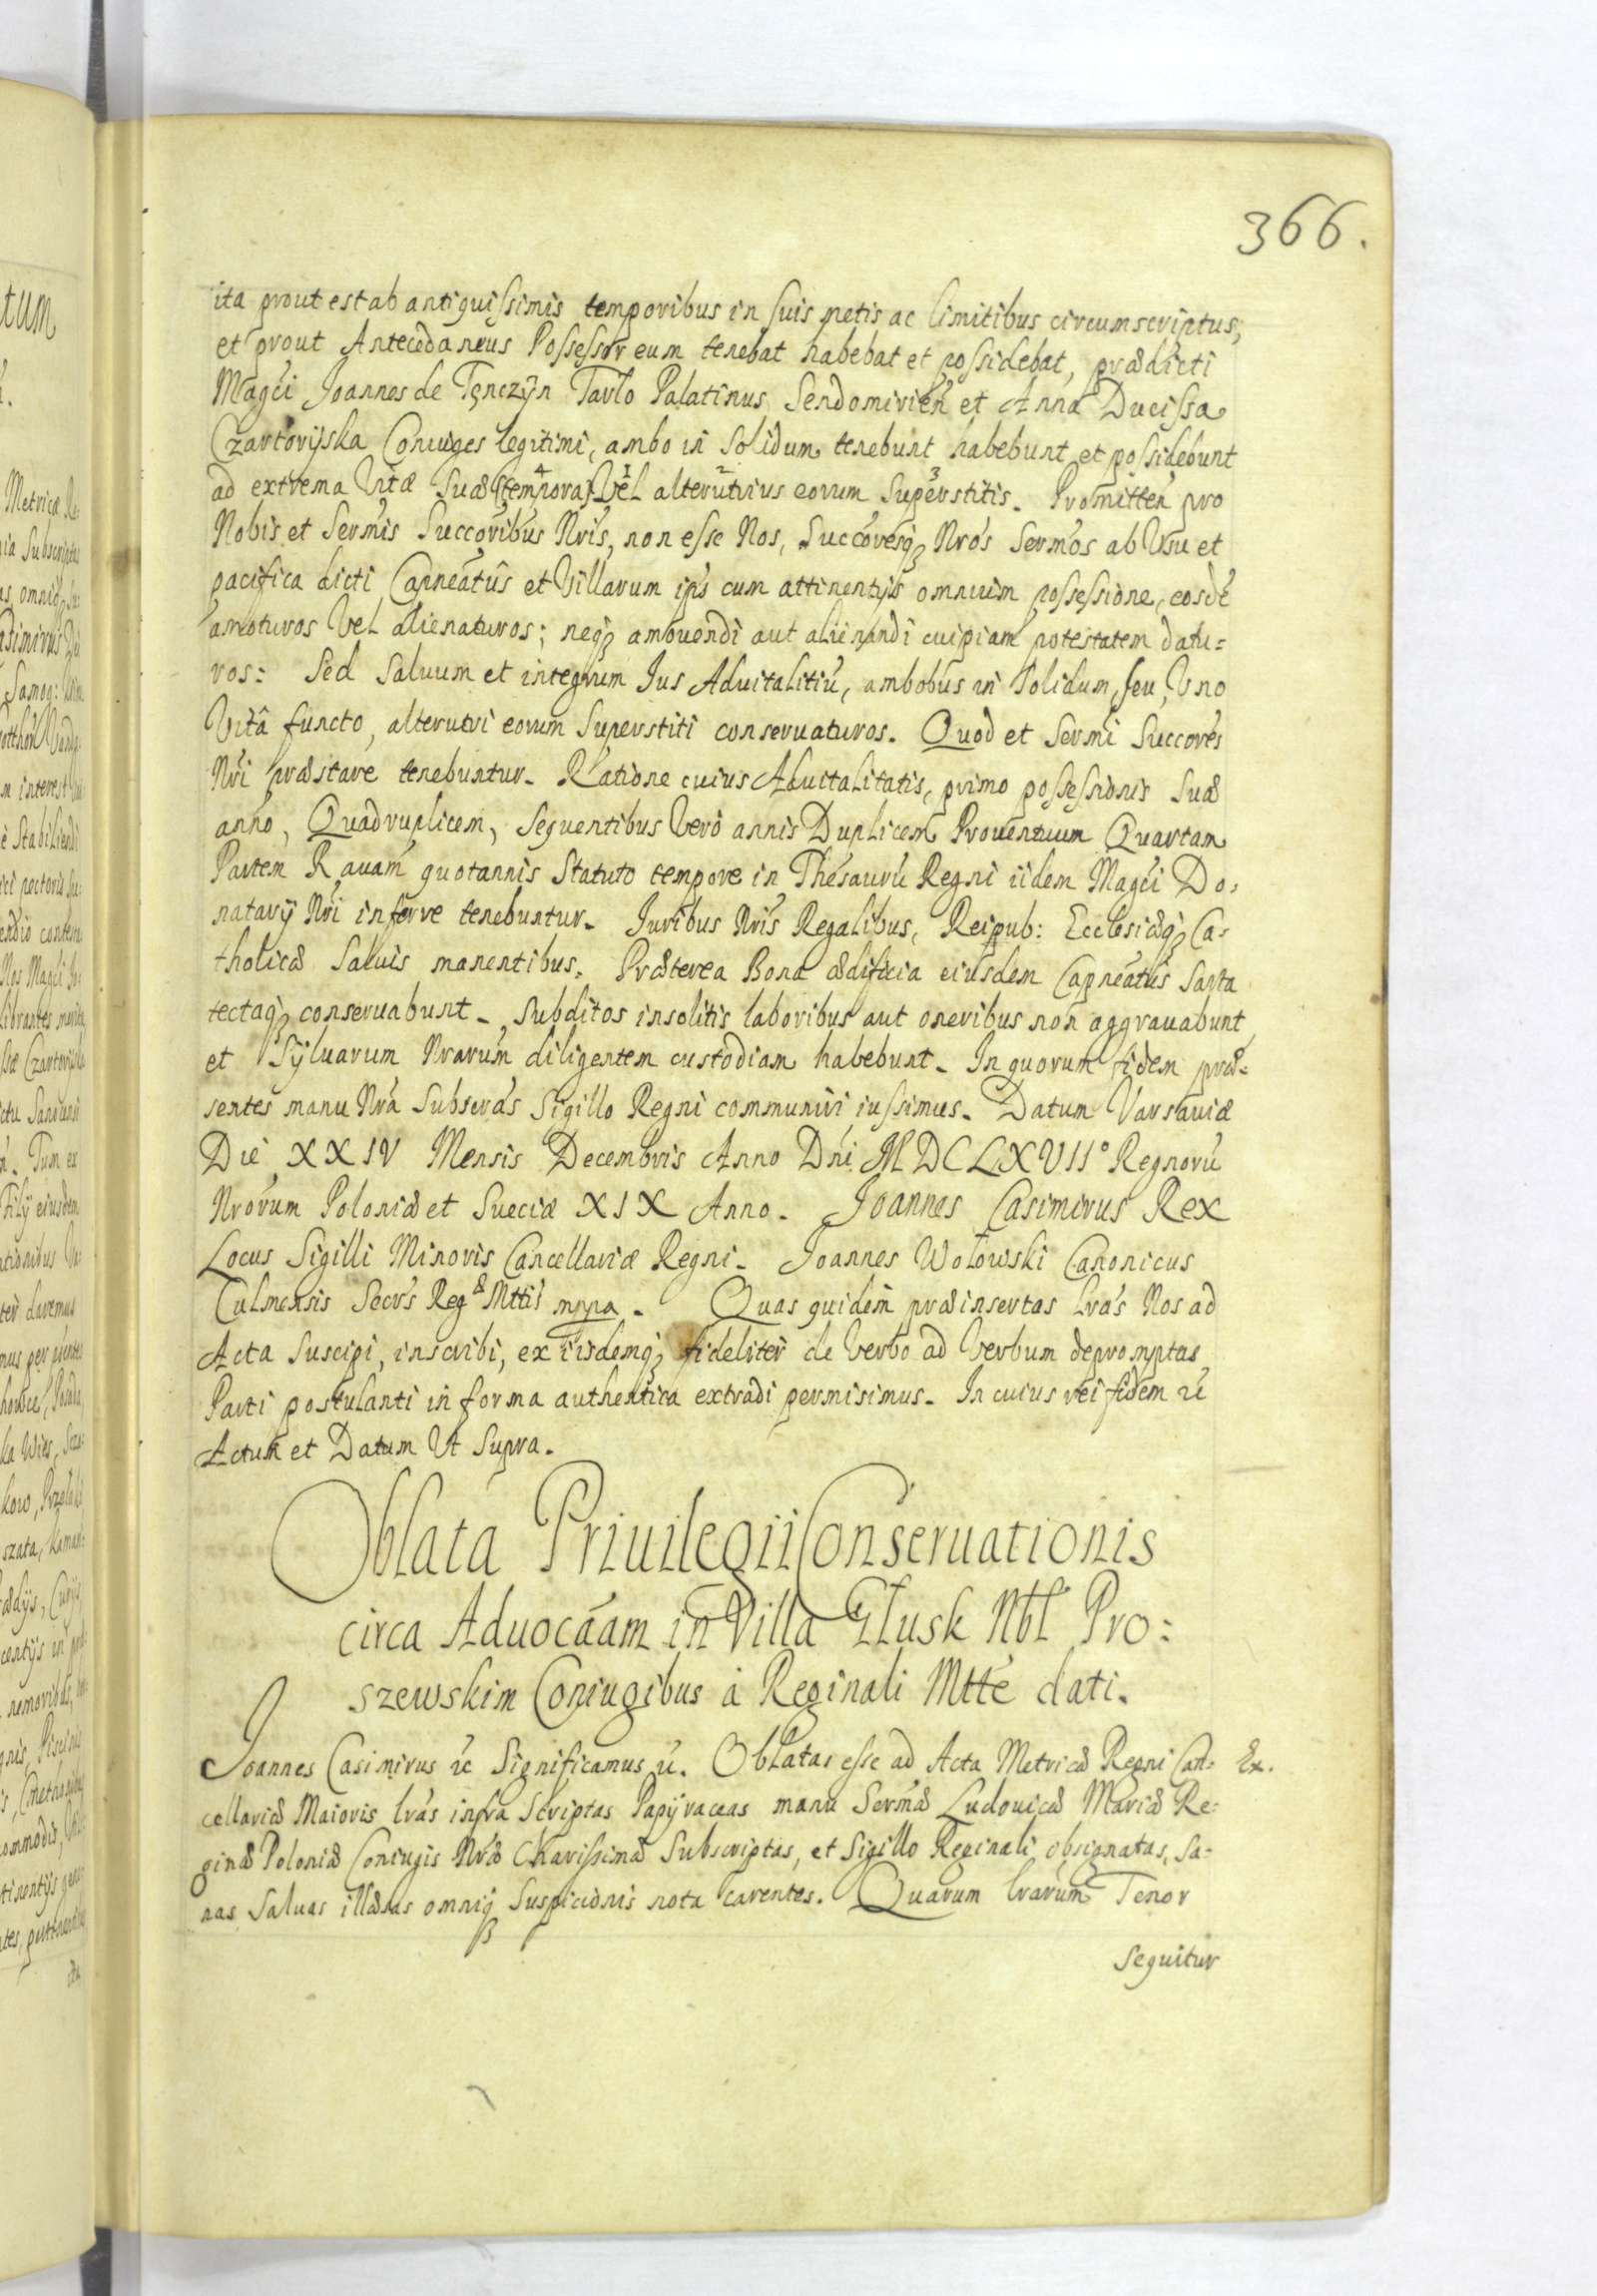 366.
ita prout est ab antiquissimis temporibus in suis metis ac limitibus circumscriptus,
et prout Antecedaneus Possessor eum tenebat habebat et possidebat, prædicti
Magci Joannes de Tęnczyn Tarło Palatinus Sendomirien et Anna Ducissa
Czartoryska Coniuges legitimi, ambo in solidum tenebunt habebunt et possidebunt
ad extrema Vitæ suæ (tempora) Vel alterutrius eorum superstitis. Promitten pro
Nobis et Sermis Succoribus Nris, non esse Nos, Succoresq Nros Sermos ab Usu et
pacifica dicti Capneatus et Villarum ips cum attinentijs omnium possessione, eosde
amoturos Vel alienaturos; neq amouendi aut alienandi cuipiam potestatem datu=
ros: Sed saluum et integrum Ius Aduitalitiu, ambobus in solidum, seu, Uno
Vitâ functo, alterutri eorum superstiti conseruaturos. Quod et Sermi Succores
Nri præstare tenebuntur. Ratione cuius Aduitalitatis, primo possessionis suæ
anno, Quadruplicem, sequentibus Vero annis Duplicem Prouentuum Quartam
Partem Rauam quotannis statuto tempore in Thesauru Regni iidem Magci Do=
natarij Nri inferre tenebuntur. Iuribus Nris Regalibus, Reipub: Ecclesiæq Ca=
tholicæ saluis manentibus. Præterea Bona ædificia eiusdem Capneatus sarta
tectaq conseruabunt. subditos insolitis laboribus aut oneribus non aggrauabunt
et syluarum Nrarum diligentem custodiam habebunt. In quorum fidem præ=
sentes manu Nra subscras Sigillo Regni communiri iussimus. Datum Varsauiæ
Die XXIV Mensis Decembris Anno Dni MDCLXVII° Regnoru
Nrorum Poloniæ et Sueciæ XIX Anno. Joannes Casimirus Rex
Locus Sigilli Minoris Cancellariæ Regni. Joannes Wołowski Canonicus
Culmensis Secrs Regæ Mttis mppa. Quas quidem præinsertas lras Nos ad
Acta suscipi, inscribi, ex iisdemq fideliter de Verbo ad Verbum depromptas
Parti postulanti in forma authentica extradi permisimus. In cuius rei fidem &c
Actum et Datum Ut supra.
Oblata Priuilegii Conseruationis
circa Aduocaam in Villa Głusk Nbl Pro:
szewskim Coniugibus à Reginali Mtte dati.
Joannes Casimirus &c Significamus &c. Oblatas esse ad Acta Metricæ Regni Can= Ex.
cellariæ Maioris lras infra scriptas Papyraceas manu Sermæ Ludouicæ Mariæ Re=
ginæ Poloniæ Coniugis Nræ Charissimæ subscriptas, et Sigillo Reginali obsignatas, sa=
nas saluas illæsas omniq suspicionis nota carentes. Quarum lrarum Tenor
sequitur